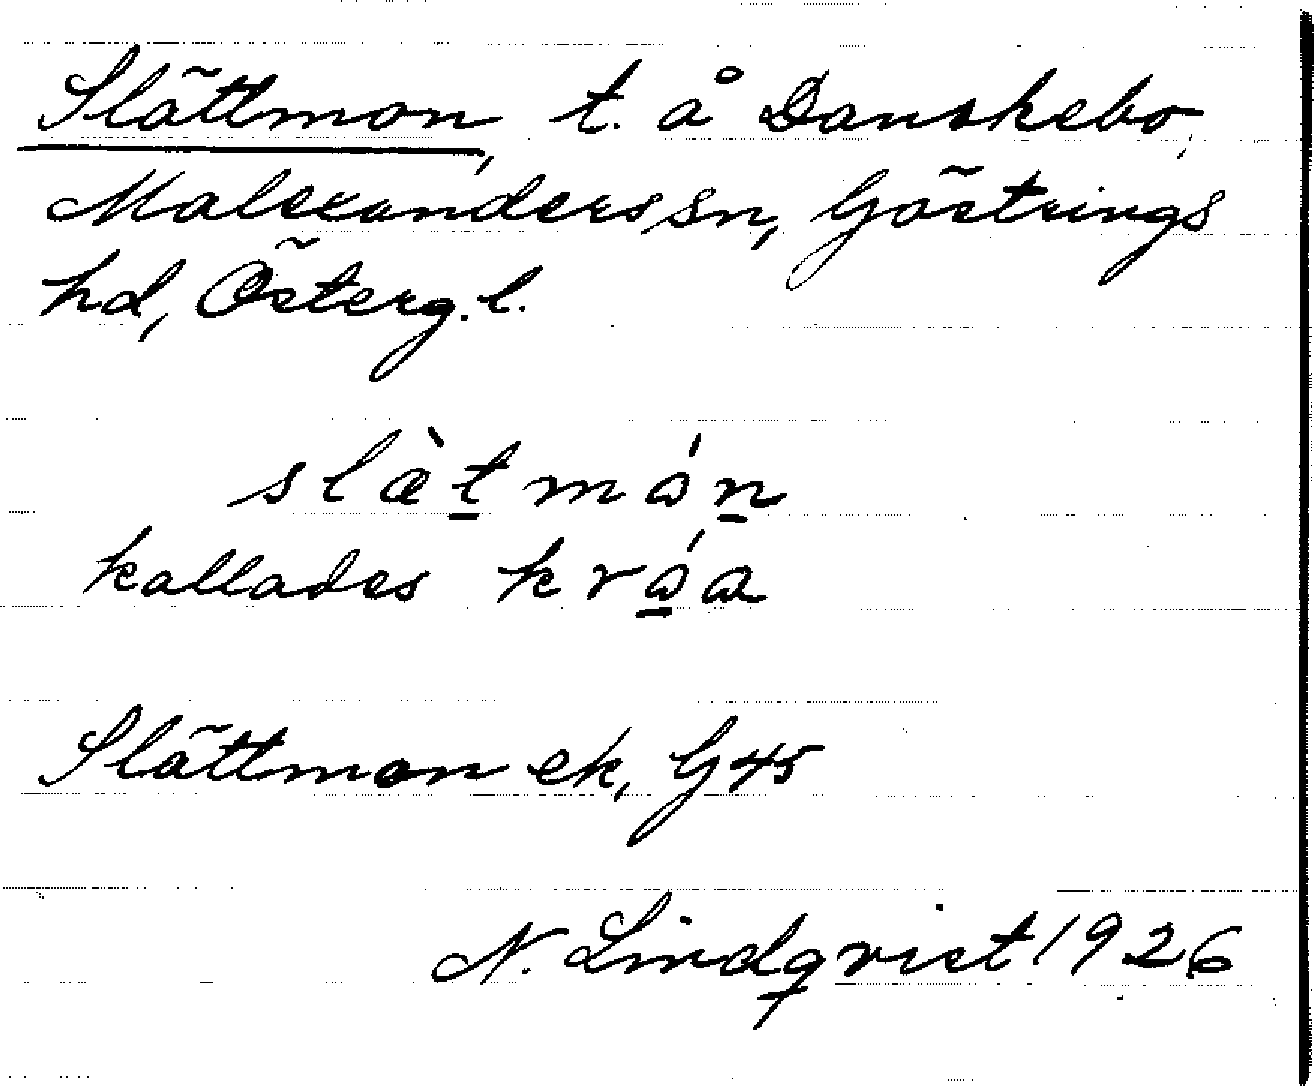 Slättmon, t. å Danskebo,
Malexanders sn, Göstrings
hd, Österg. l.
slæ̀t̲ mɷ́n̲
kallades k r ɷ̲́ a
Slättmon ek, G 45
N. Lindqvist 1926